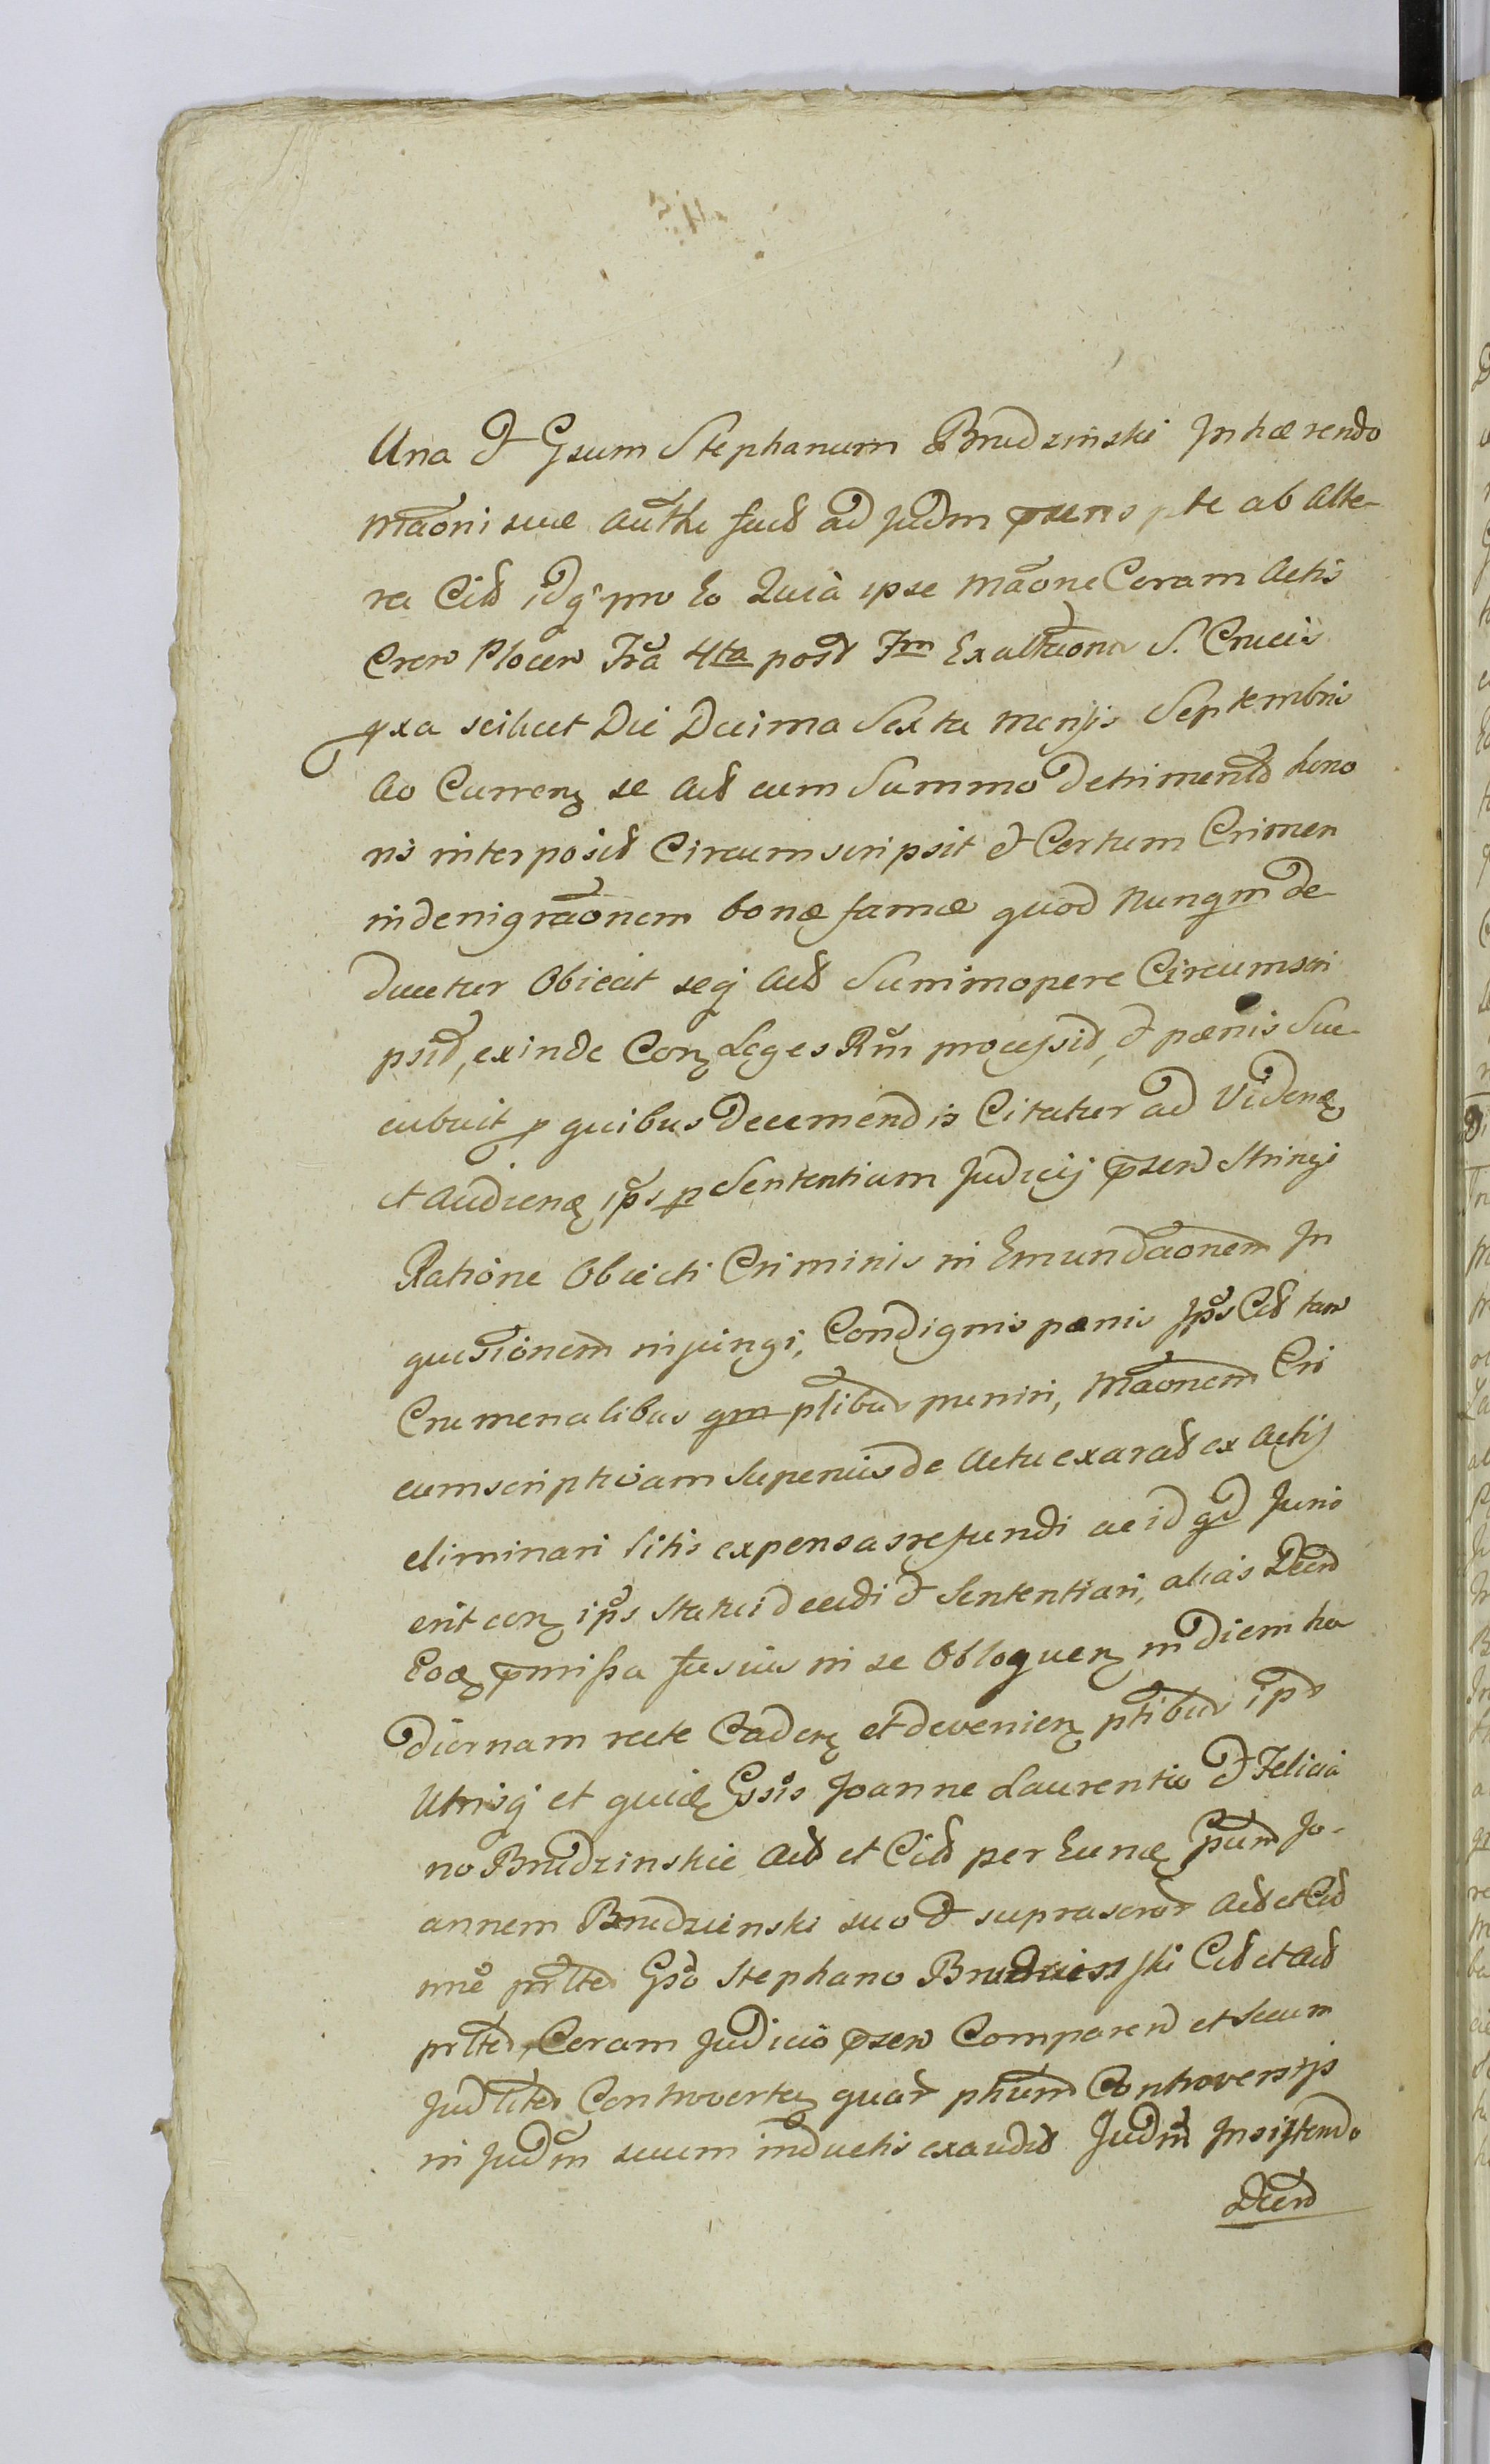 Una & Gsum Stephanum Brudzinski Inhærendo
Mãoni suæ authe fact ad Judm p̃sens pte ab Alte-
ra Citt idq̃ pro Eo Quia ipse Mãone Coram Actis
Cren Plocen Fr̃a 4ta post Fm Exalt̃aonis S. Crucis
pxa scilicet Die Decima Sexta Mensis Septembris
Ao Curren se Act cum Summo detrimento hono
ris interposit Circumscripsit & Certum Crimen
in denigrãonem bonæ famæ quod Nunqm de-
ducetur Obiecit seq̃ Act Summopere Circumscri
psit, exinde Con Leges Rñi processit, & pænis Suc-
cubuit p quibus Decernendis Citatur ad Viden
et Audien ip̃s p Sententiam Judicij p̃sen Stringi
Ratione Obiecti Criminis in Emund̃aonem In
quisitionem injungi, Condignis pænis Ip̃s Citt tam
Crumenalibus qm p̃libus puniri, Mãonem Cir
cumscriptivam Superius de Actu exarat ex Actis
eliminari litis expensas refundi ac id qd Juris
erit con ip̃s statui decidi & Sententiari, alias Decrt
Eod p̃missa fusius in se Obloquen in diem ho
diernam recte Caden et devenien p̃tibus ips
Utrisq̃ et quid Gssis Joanne Laurentio & Felicia
no Brudzinskie Act et Citt per Eund Ip̃um Jo-
annem Brudzienski suo & suprascript Act et Citt
nne p̃rlter Gso Stephano Brudzienski Citt et Act
p̃rlter, Coram Judicio p̃sen Comparen et secum
Judlter Controverten quar p̃tium Controversijs
in Judm suum inductis exaudit Judm Insistendo
Decrt